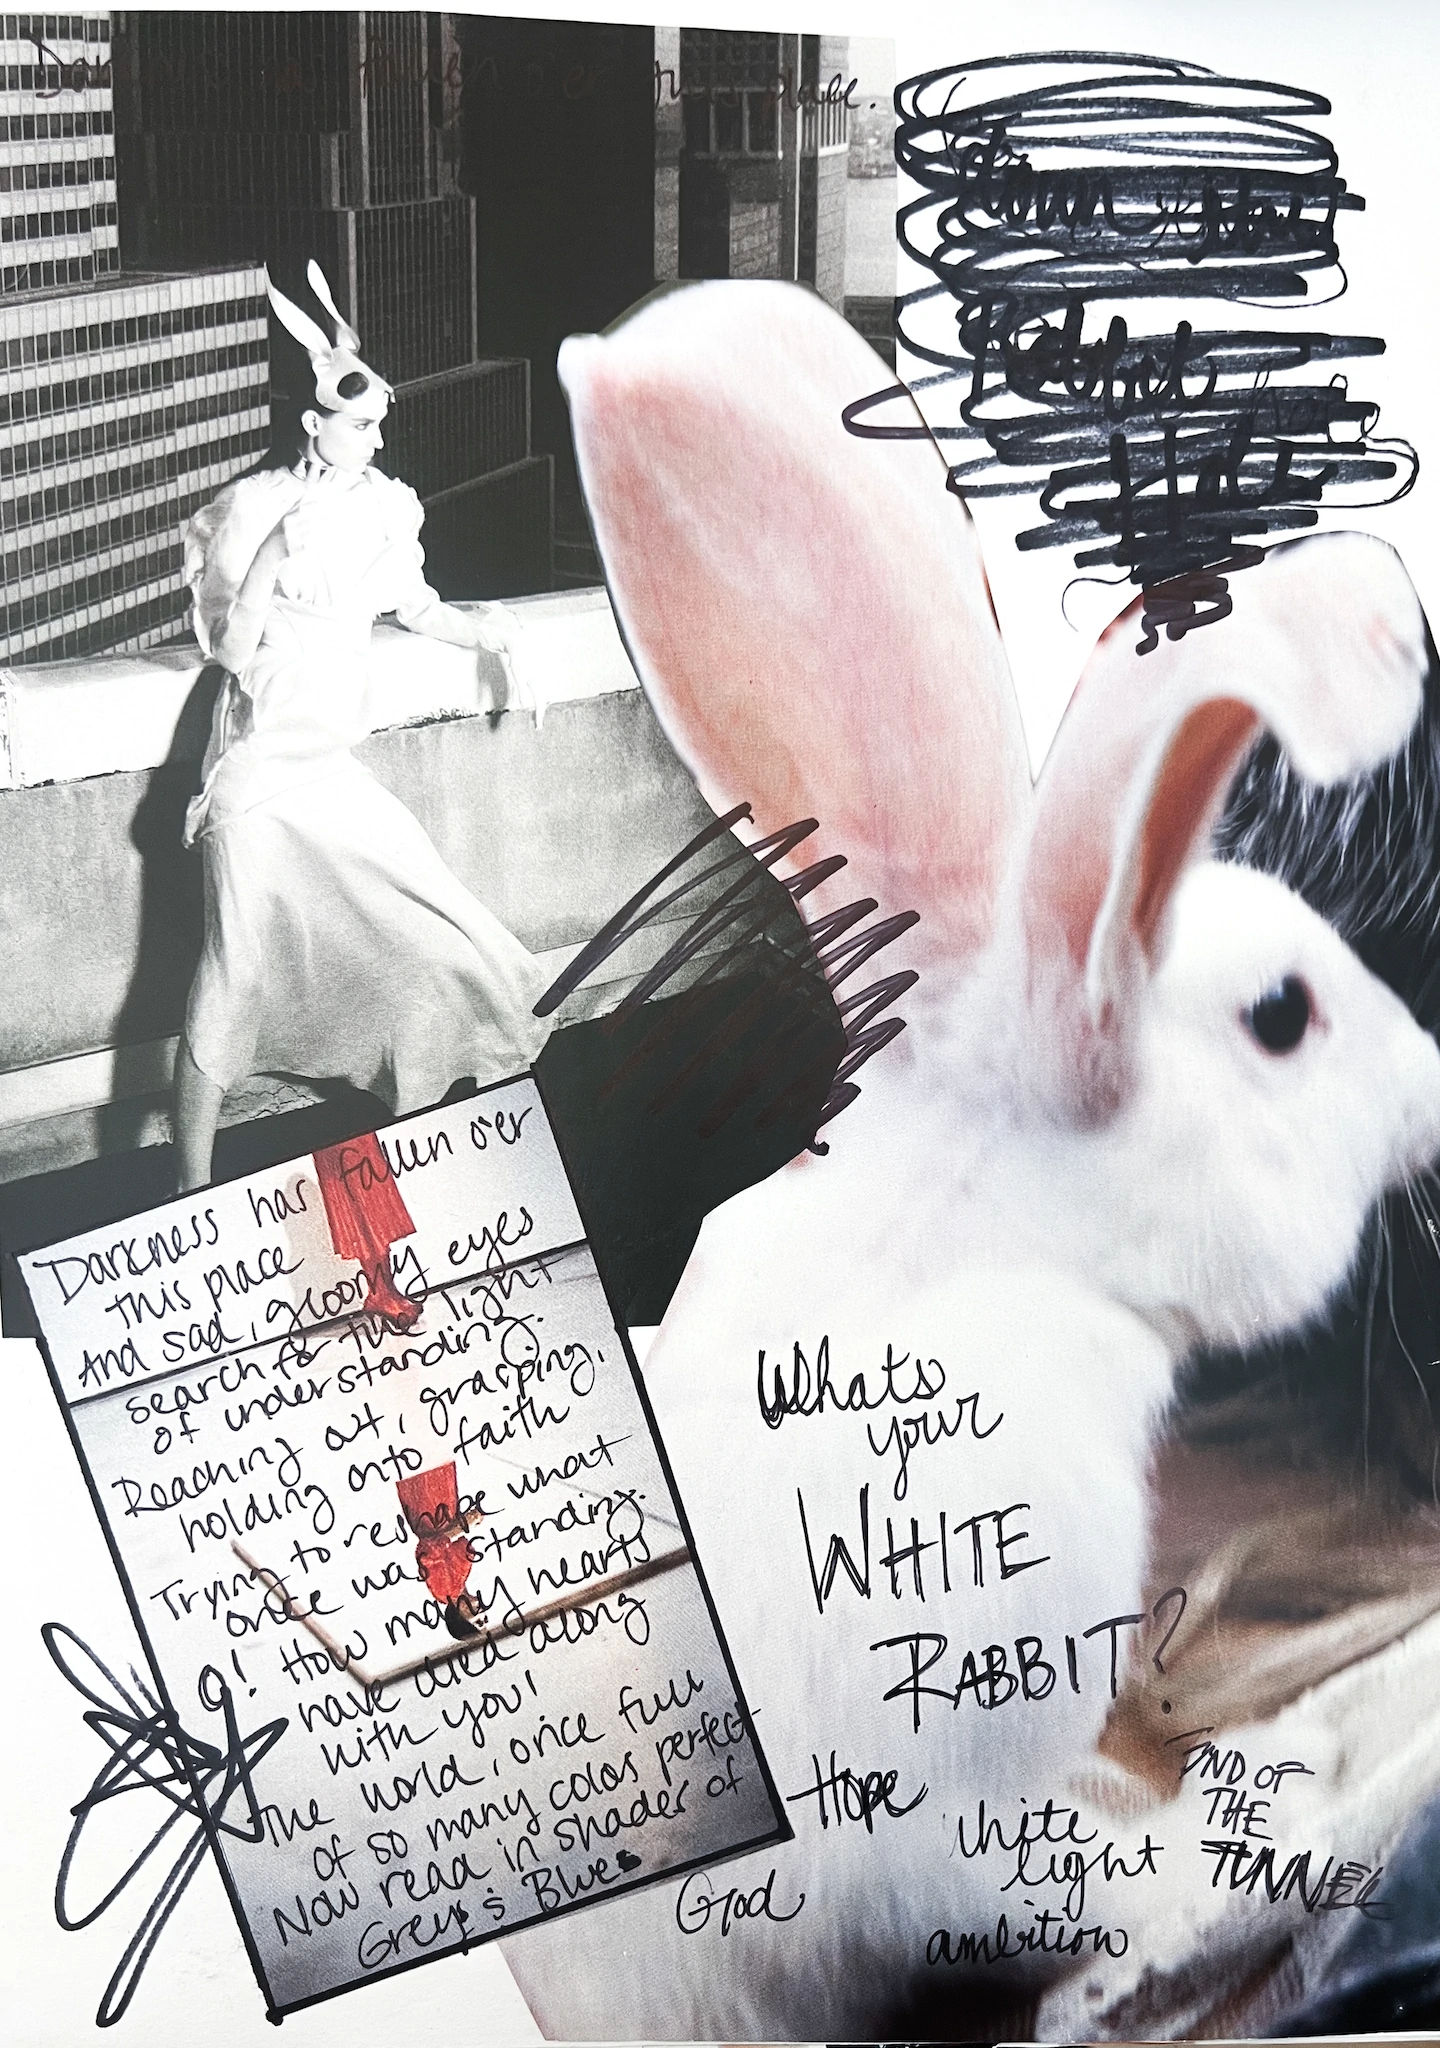 Darkness has fallen o'er this place.
down
Rabbit hole
Hole
Darkness has fallen o'er
this place
And sad, gloomy eyes
search for the light
of understanding.
Reaching out, grasping,
holding onto faith
Trying to reshape what
once was standing.
O! How many hearts
have died along
with you!
The world, once full
of so many colors perfect
Now read in shades of
Grey's & Blues
Whats
your
WHITE
RABBIT?
Hope
God
white
light
ambition
END OF
THE
TUNNEL